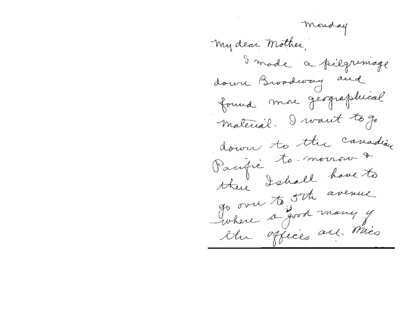 Monday
My dear Mother,
I made a pilgrimage
down Broadway and
found more geographical
material. I want to go
down to the Canadian
Pacific to-morrow &
then I shall have to
go over to 5th avenue
where a good many of
the offices are. Miss